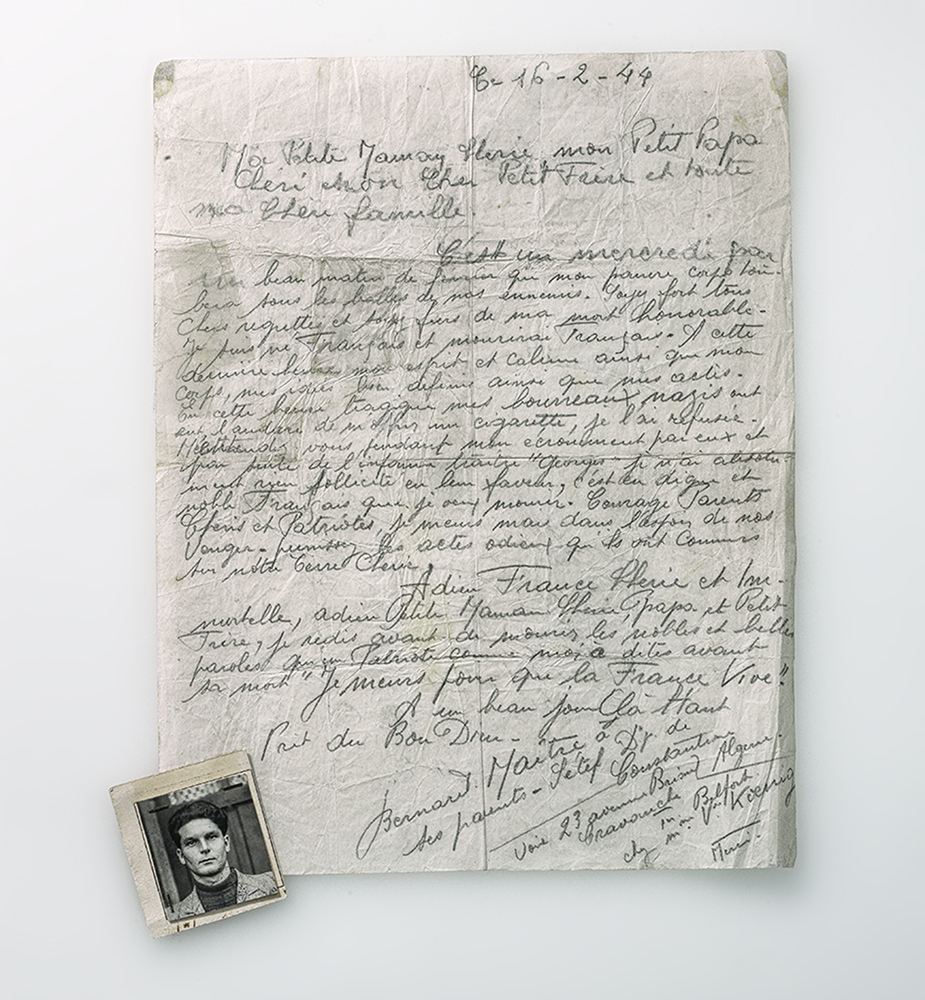 16-2-44
Ma Petite Maman Chérie, mon Petit Papa
Chéri mon Cher Petit Frère et toute
ma Chère famille.
C'est un mercredi par
un beau matin de février que mon pauvre corps tom-
bera sous les balles de nos ennemis. Soyez fort tous
Chers regrettés et soyez fiers de ma mort honorable.
Je suis né Français et mourirai Français. A cette
dernière heure mon esprit et calme ainsi que mon
corps, mes idées bien définis ainsi que mes actes.
En cette heure tragique mes bourreaux nazis ont
eut l'audace de m'offrir une cigarette, je l'ai refusée.
vous pendant mon ecrouement par eux et
par suite de l'infamie traître "Georges" je n'ai absolu-
ment rien sollicité en leur faveur, c'est en digne et
noble Français que je veux mourir. Courage Parents
Chéris et Patriotes, je meurs mais dans l'espoir de nos
Venger. les actes odieux qu'ils ont commis
sur nôtre terre Chérie.
Adieu France Chérie et Im-
mortelle, adieu Petite Maman Chérie, papa et Petit
Frère, je redis avant de mourir les nobles et belles
paroles qu'un Patriote comme moi a dites avant
sa mort "Je meurs pour que la France Vive"
A un beau jour Là Haut
Prêt du Bon Dieu-
Bernard. Maître à Dp de
ses parents- Sétif Constantine
Algérie.
Voir 23 avenue
Cravanche Belfort
chez mme Vve Koenig
Merci.